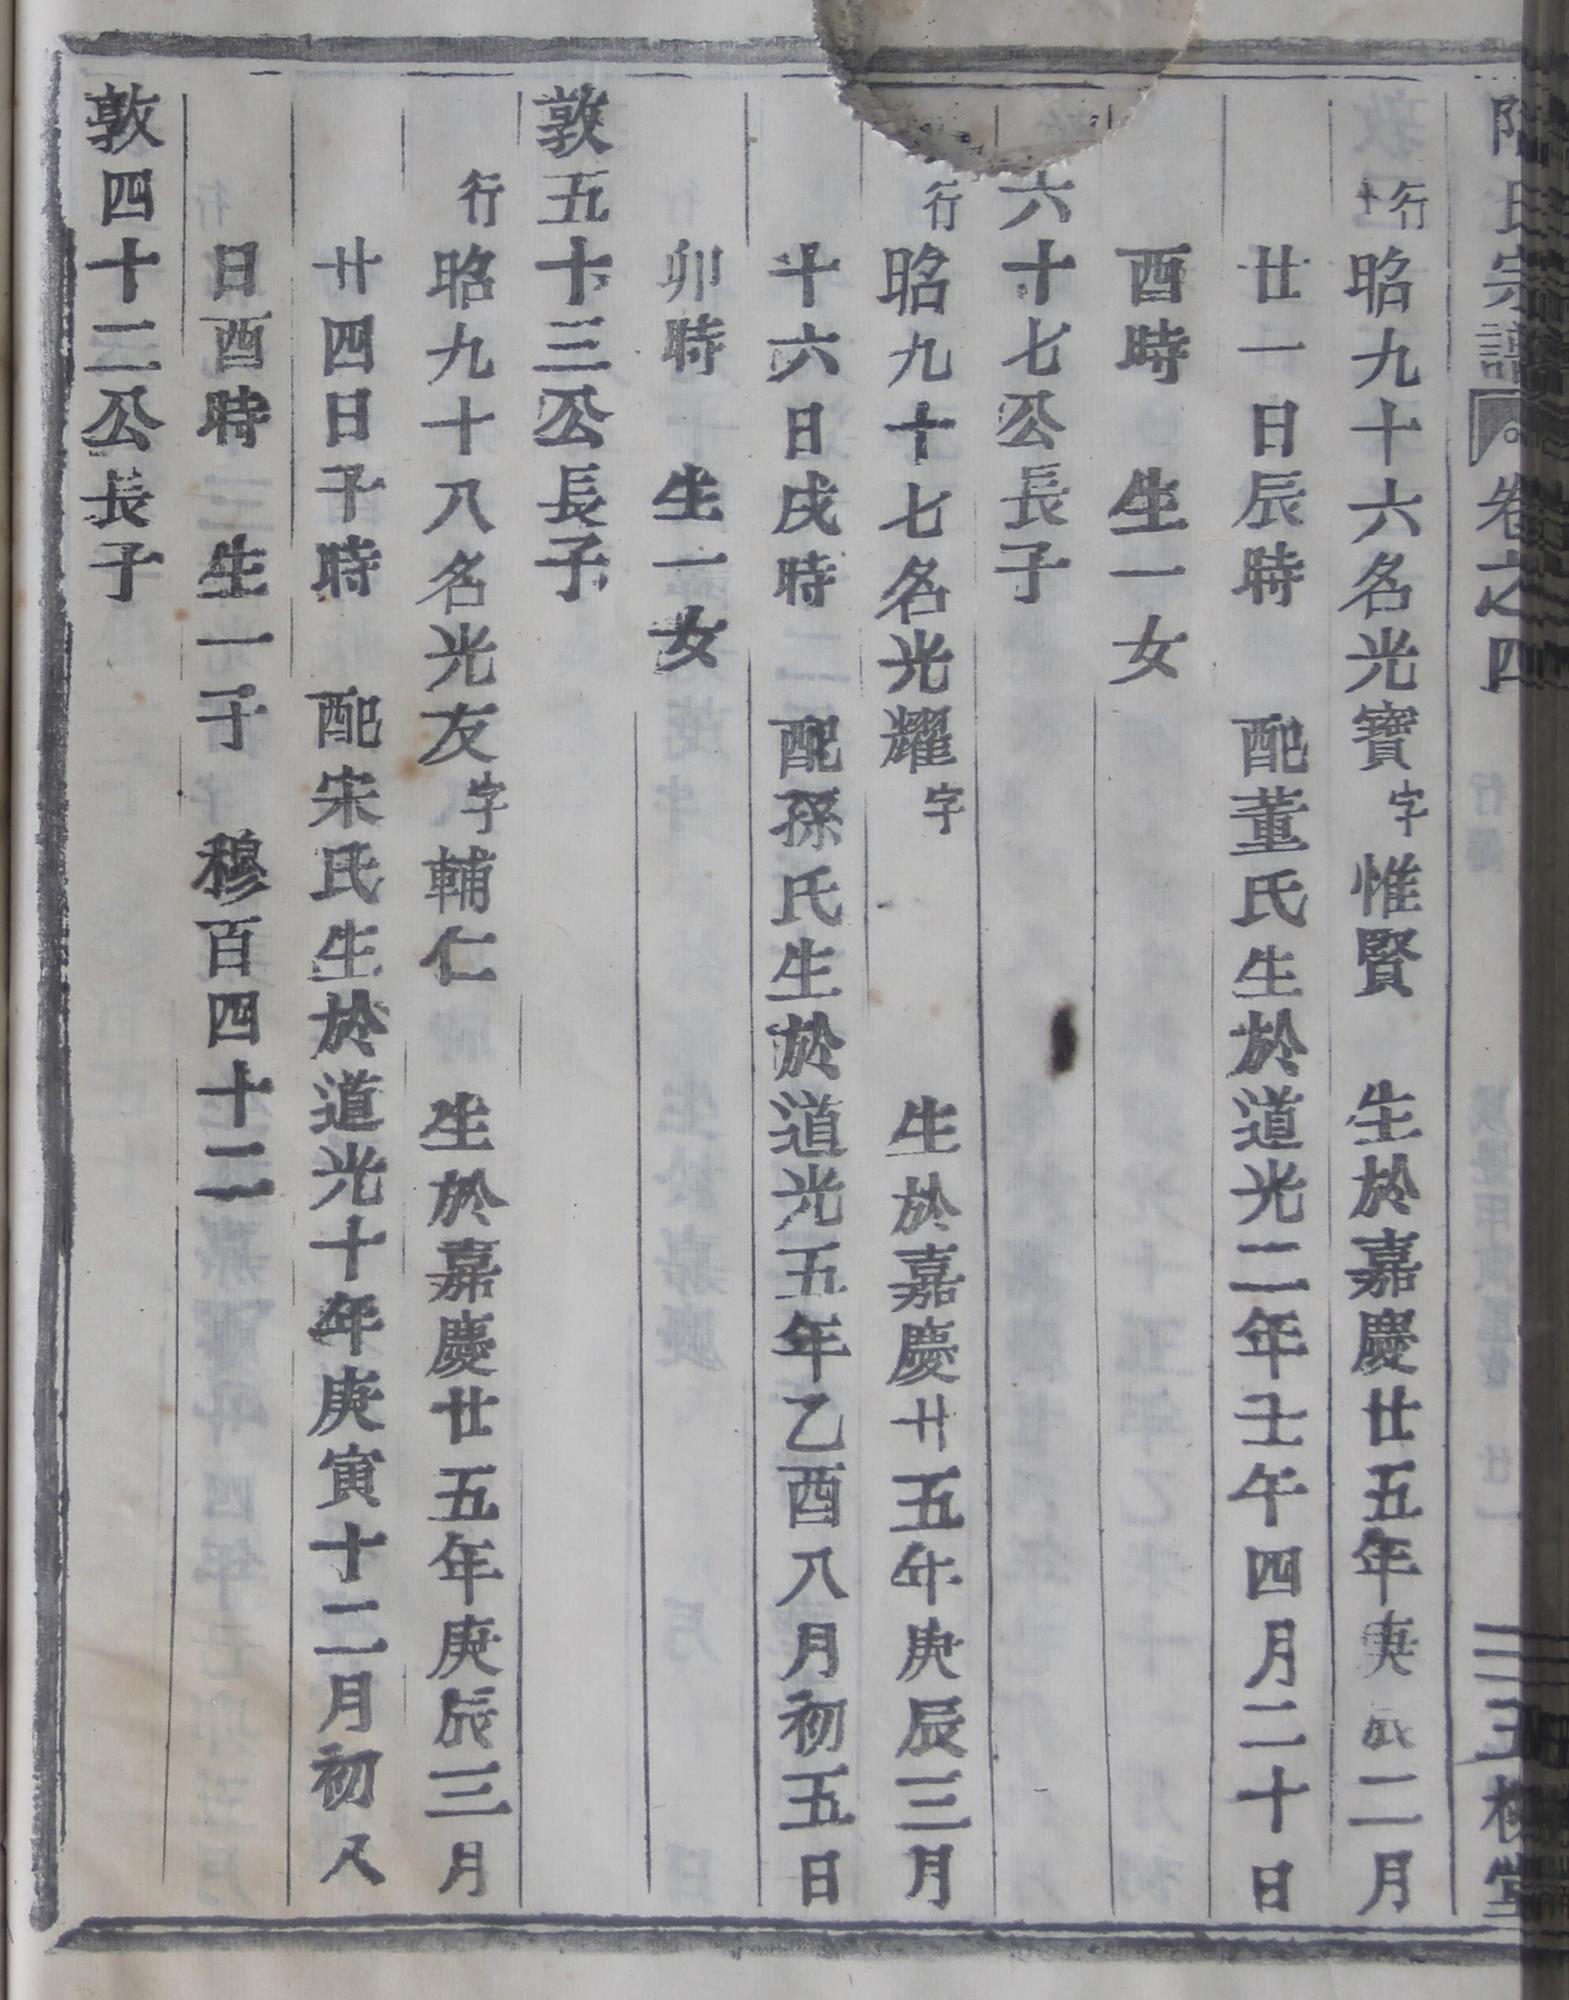 氏宗譜 卷之四 三
行昭九十六名光寶字惟賢 生於嘉慶廿五年庚辰二月
廿一日辰時 配董氏生於道光二年壬午四月二十日
酉時 生一女
六十七公長子
行昭九十七名光耀字 生於嘉慶廿五年庚辰三月
十六日戌時 配孫氏生於道光五年乙酉八月初五日
卯時 生一女
敦五十三公長子
行昭九十八名光友字輔仁 生於嘉慶廿五年庚辰三月
廿四日子時 配宋氏生於道光十年庚寅十二月初八
日酉時 生一子 穆百四十二
敦四十二公長子